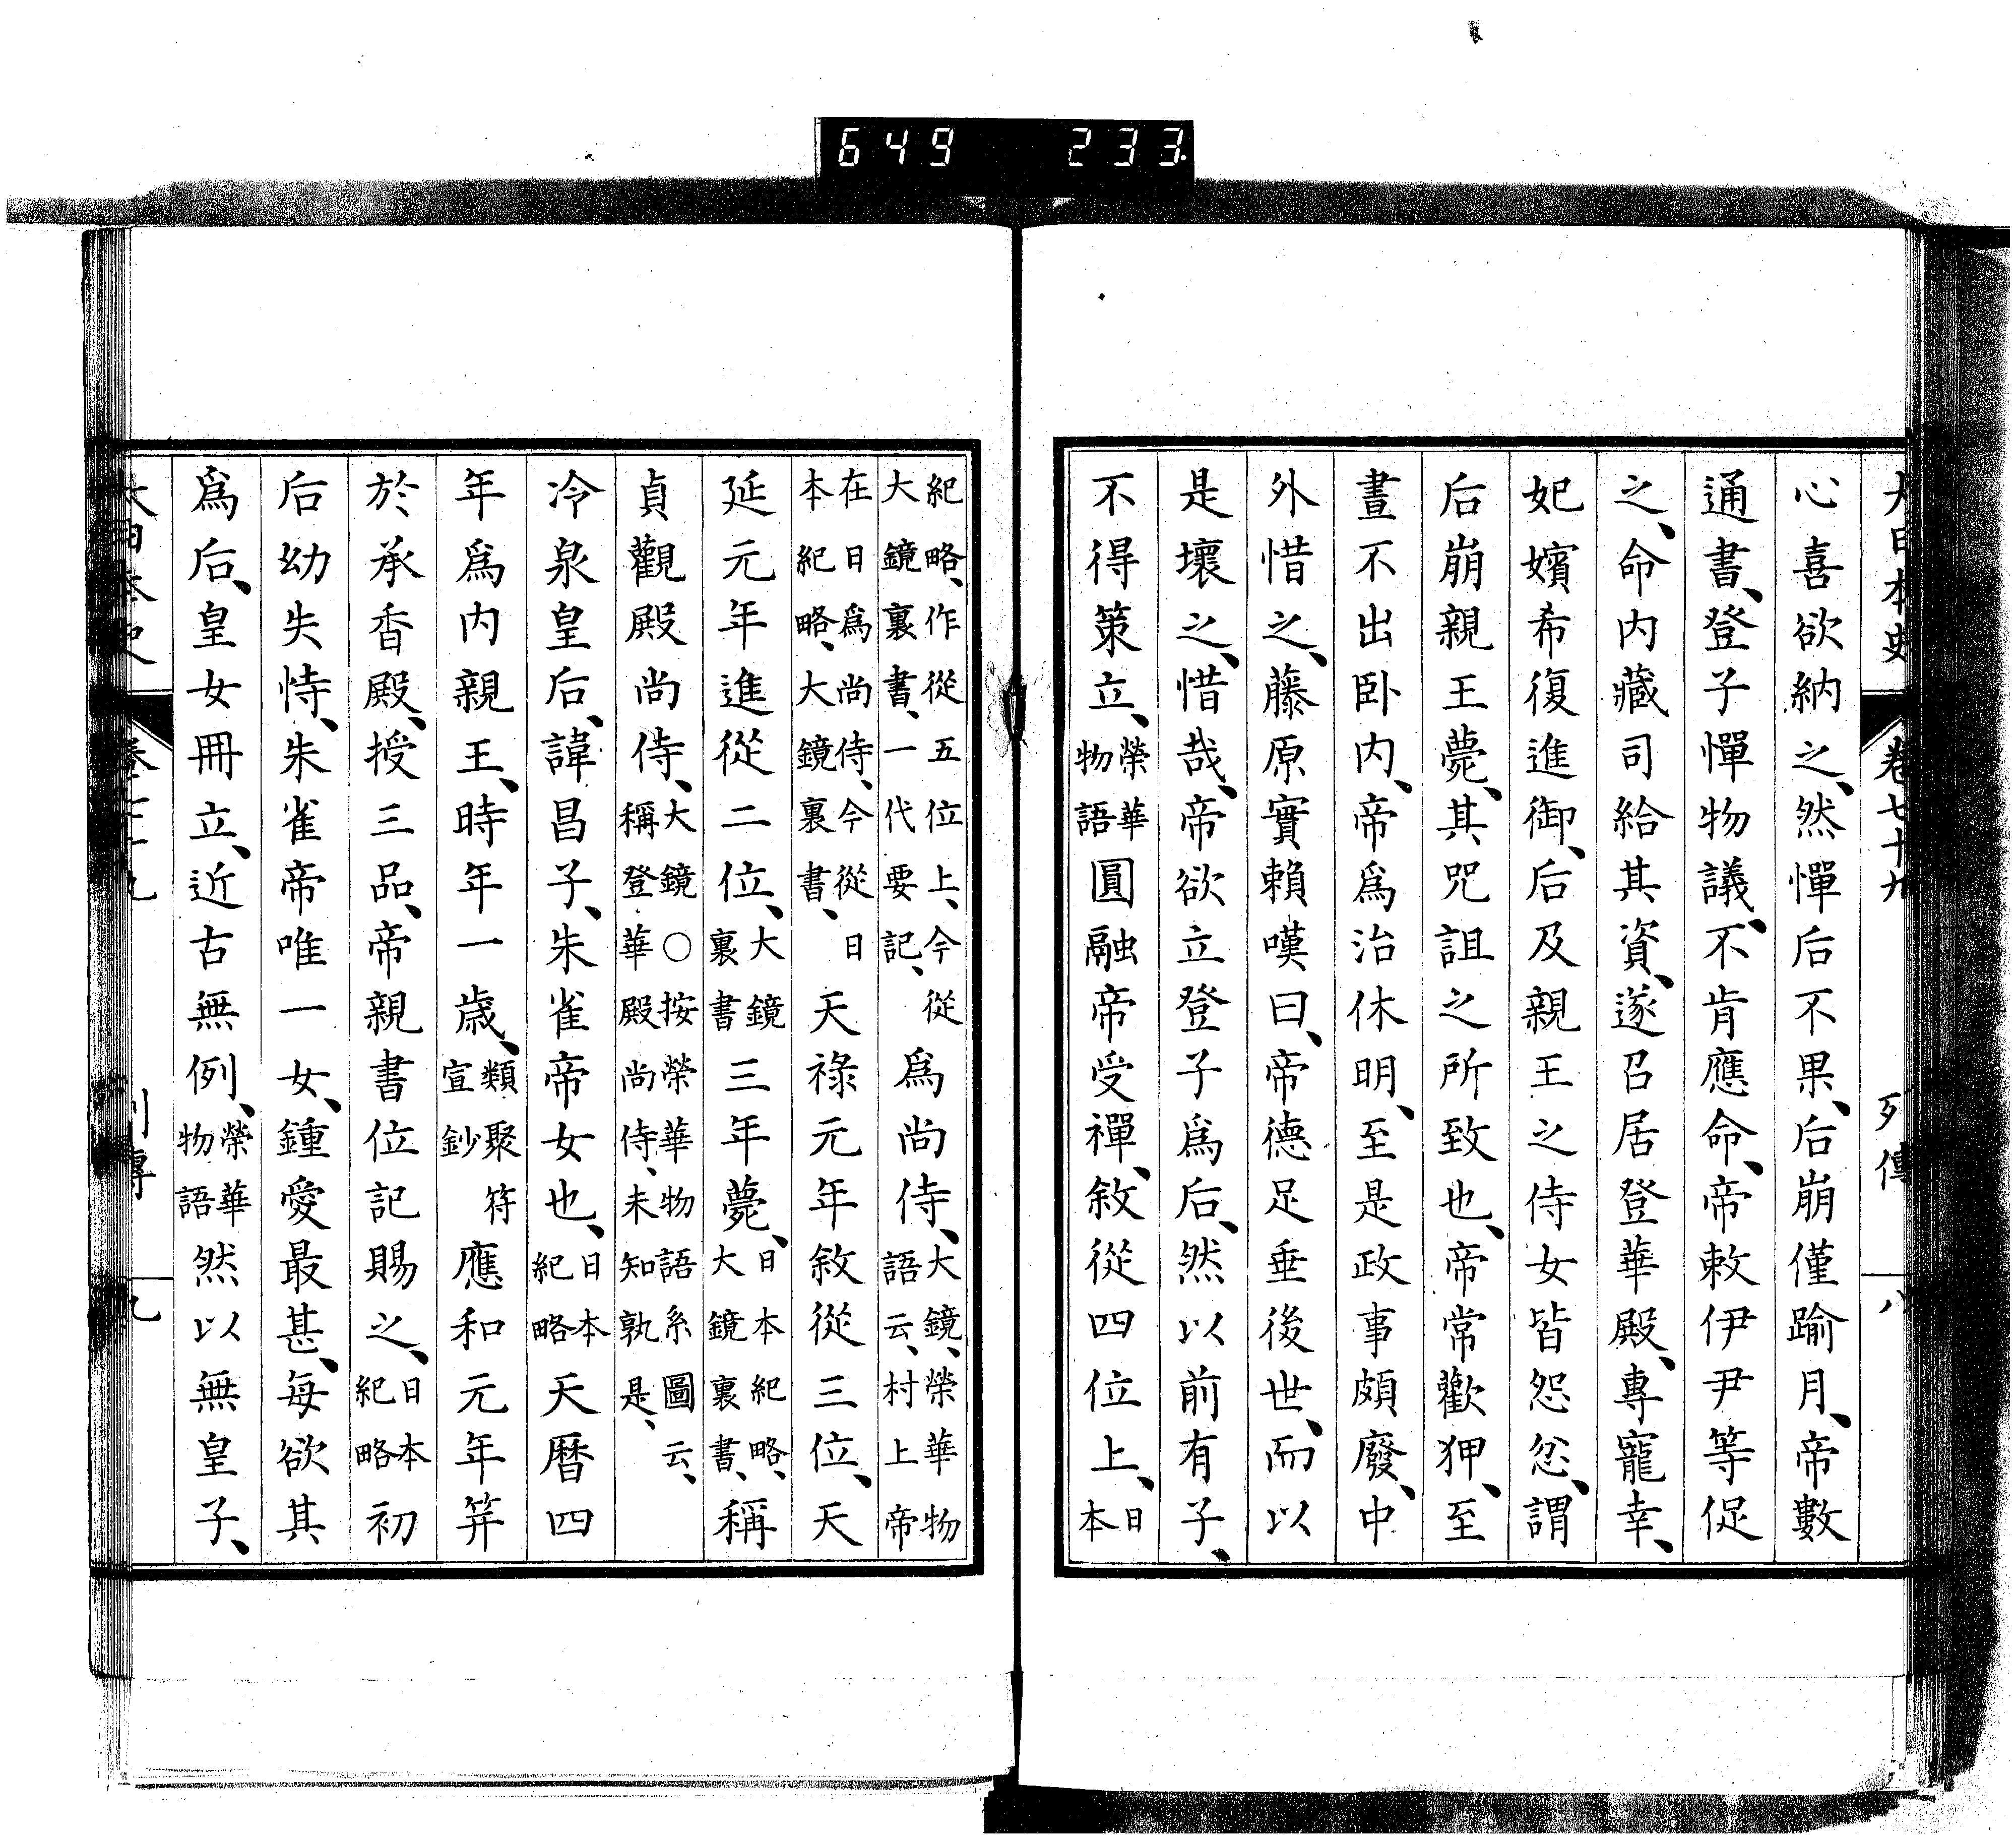 649 233
大日本史 卷七十九 列傳 八
心喜欲納之、然憚后不果、后崩僅踰月、帝數
通書、登子憚物議、不肯應命、帝敕伊尹等促
之、命内藏司給其資、遂召居登華殿、專寵幸、
妃嬪希復進御、后及親王之侍女皆怨忿、謂
后崩親王薨、其咒詛之所致也、帝常歡狎、至
晝不出卧内、帝爲治休明、至是政事頗廢、中
外惜之、藤原實賴嘆曰、帝德足垂後世、而以
是壞之、惜哉、帝欲立登子爲后、然以前有子、
不得策立、榮華物語圓融帝受禪、敘從四位上、日本
紀略、作從五位上、今從大鏡裏書、一代要記、爲尚侍、大鏡、榮華物語云、村上帝
在日爲尚侍、今從日本紀略、大鏡裏書、天祿元年敘從三位、天
延元年進從二位、大鏡裏書三年薨、日本紀略、大鏡裏書、稱
貞觀殿尚侍、大鏡○按榮華物語系圖云、稱登華殿尚侍、未知孰是、
冷泉皇后、諱昌子、朱雀帝女也、日本紀略天曆四
年爲内親王、時年一歲、類聚符宣鈔應和元年笄
於承香殿、授三品、帝親書位記賜之、日本紀略初
后幼失恃、朱雀帝唯一女、鍾愛最甚、每欲其
爲后、皇女冊立、近古無例、榮華物語然以無皇子、
大日本史 卷七十九 列傳 九